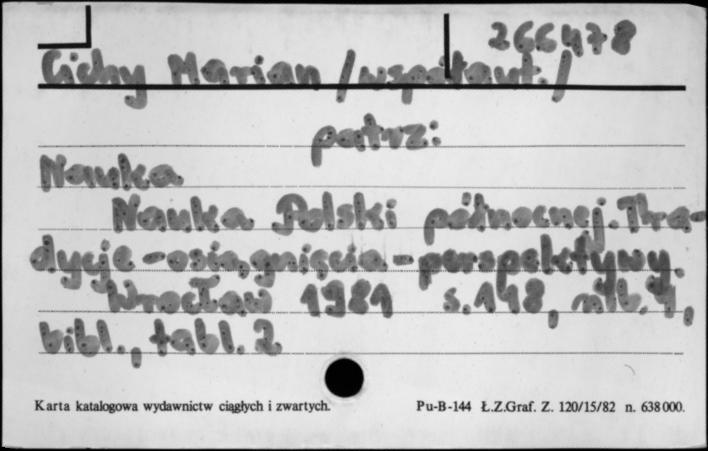 266478
Cichy Marian /współaut./
patrz:
Nauka
Nauka Polski północnej. Tra-
dycje - osiągnięcia - perspektywy.
Wrocław 1981 s. 148, nlb. 4,
bibl., tabl. 2
Karta katalogowa wydawnictw ciągłych i zwartych.
Pu-B-144 Ł.Z.Graf. Z. 120/15/82 n. 638 000.